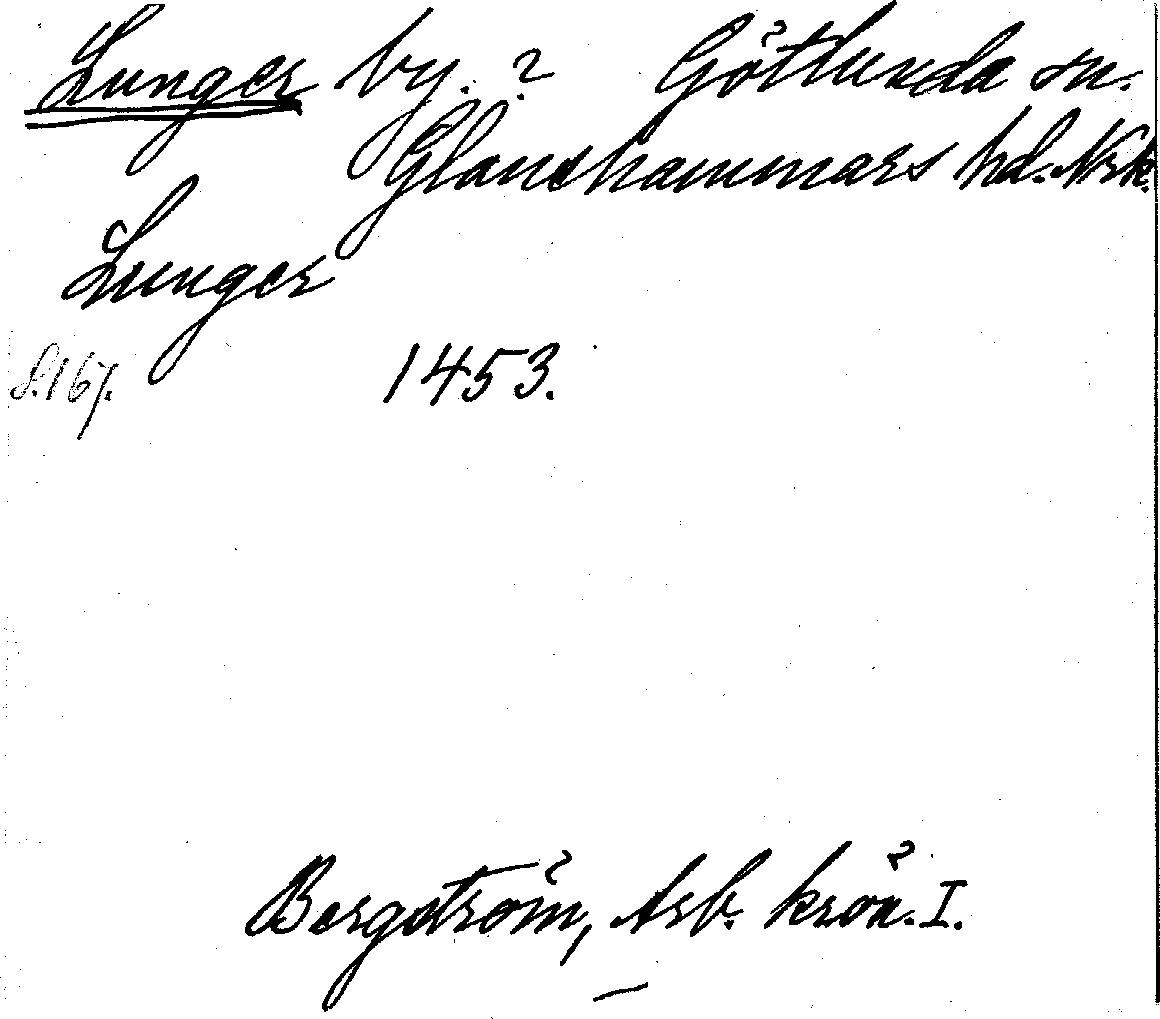 Lunger by. ? Götlunda sn.
Glanshammars hd. Nrk.
Lunger
s. 167. 1453.
Bergström, Arb. krön. I.